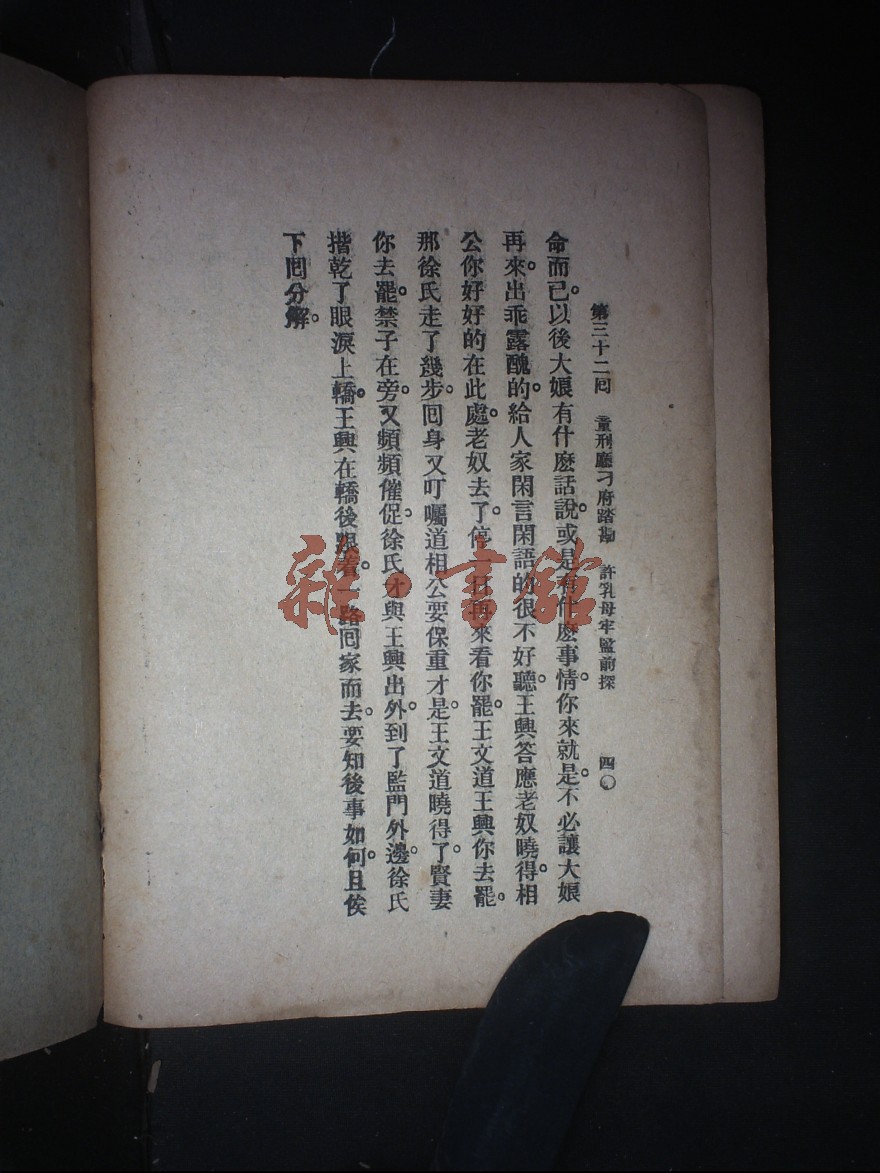 第三十二回　童刑廳刁府踏勘　許乳母牢監前探　四〇
命而已。以後大娘有什麽話說。或是有什麽事情。你來就是。不必讓大娘
再來。出乖露醜的。給人家閑言閑語的。很不好聽。王興答應老奴曉得。相
公你好好的在此處。老奴去了。停一日再來看你罷。王文道王興你去罷。
那徐氏走了幾步。回身又叮囑道相公要保重才是。王文道曉得了。賢妻
你去罷。禁子在旁。又頻頻催促。徐氏才與王興出外。到了監門外邊。徐氏
揩乾了眼淚上轎。王興在轎後跟着。一路回家而去。要知後事如何。且俟
下回分解。
雜·書館